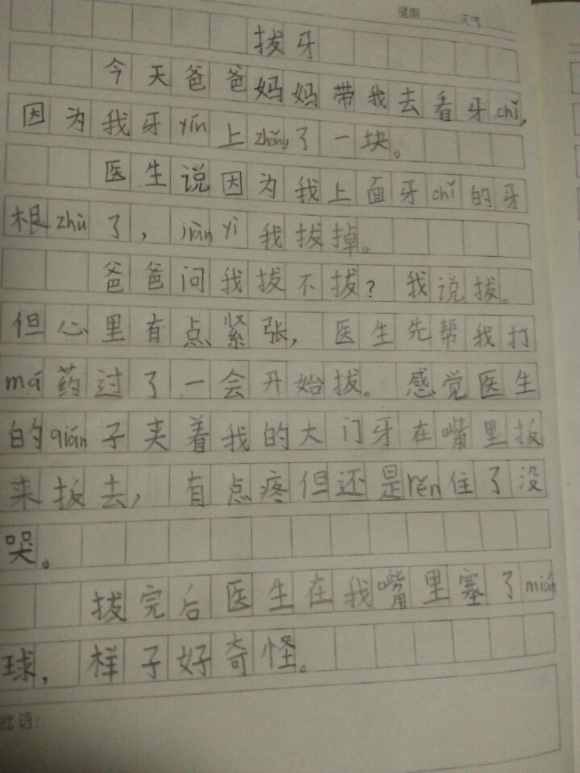 星期 天气
拔牙
今天爸爸妈妈带我去看牙chǐ,
因为我牙yín上zhǒng了一块。
医生说因为我上面牙chǐ的牙
根zhù了，jiàn yì我拔掉。
爸爸问我拔不拔？我说拔。
但心里有点紧张，医生先帮我打
má药过了一会开始拔。感觉医生
的qián子夹着我的大门牙在嘴里扳
来扳去，有点疼但还是rěn住了没
哭。
拔完后医生在我嘴里塞了mián
球，样子好奇怪。
批语：